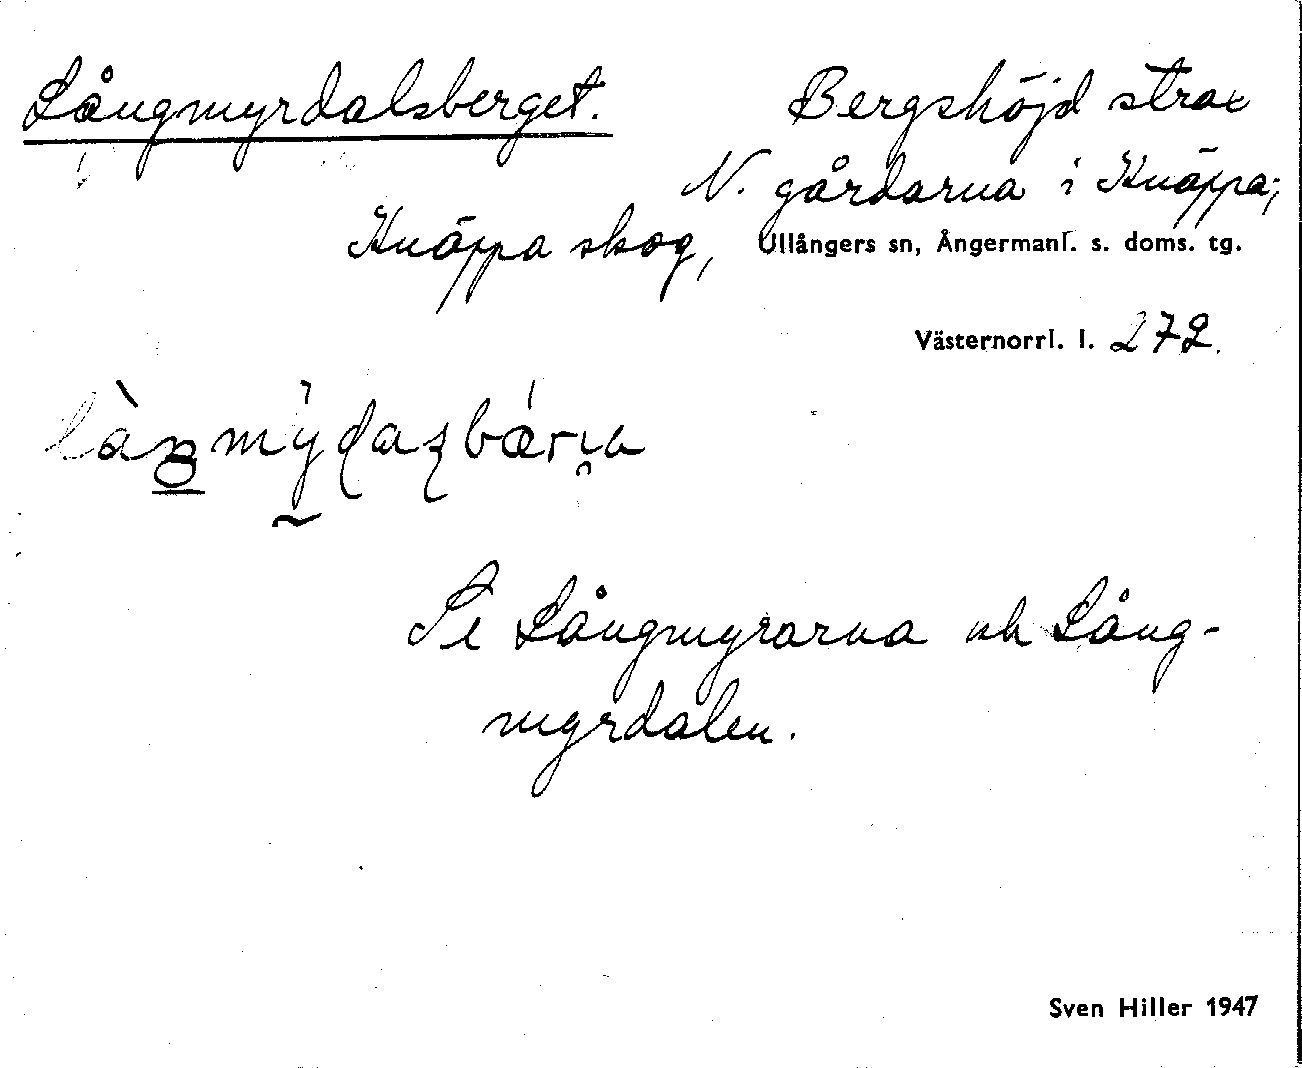 Långmyrdalsberget. Bergshöjd strax
N. gårdarna i Knäppa;
Knäppa skog, Ullångers sn, Ångermanl. s. doms. tg.
Västernorrl. l. 272.
Se Långmyrarna och Lång-
myrdalen.
Sven Hiller 1947